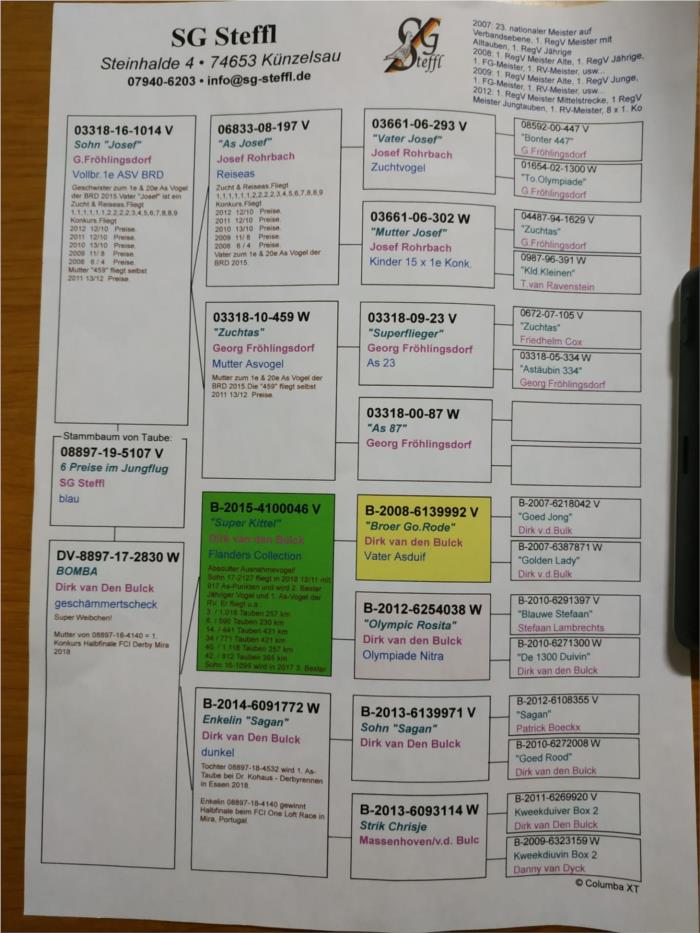 SG Steffl
Steinhalde 4 • 74653 Künzelsau
07940-6203 • info@sg-steffl.de
SG
Steffl
2007: 23. nationaler Meister auf
Verbandsebene, 1. RegV Meister mit
Alttauben, 1. RegV Jährige
2008: 1. RegV Meister Alte, 1. RegV Jährige,
1. FG-Meister, 1. RV-Meister, usw...
2009: 1. RegV Meister Alte, 1. RegV Junge,
1. FG-Meister, 1. RV-Meister, usw...
2012: 1. RegV Meister Mittelstrecke, 1 RegV
Meister Jungtauben, 1. RV-Meister, 8 x 1. Ko
03318-16-1014 V
Sohn "Josef"
G.Fröhlingsdorf
Vollbr.1e ASV BRD
Geschwister zum 1e & 20e As Vogel
der BRD 2015.Vater "Josef" ist ein
Zucht & Reiseas.Fliegt
1,1,1,1,1,1,2,2,2,2,3,4,5,6,7,8,8,9
Konkurs.Fliegt
2012 12/10 Preise.
2011 12/10 Preise.
2010 13/10 Preise.
2009 11/ 8 Preise.
2008 6 / 4 Preise.
Mutter "459" fliegt selbst
2011 13/12 Preise.
Stammbaum von Taube:
08897-19-5107 V
6 Preise im Jungflug
SG Steffl
blau
DV-8897-17-2830 W
BOMBA
Dirk van Den Bulck
geschämmertscheck
Super Weibchen!
Mutter von 08897-16-4140 = 1.
Konkurs Halbfinale FCI Derby Mira
2018
06833-08-197 V
"As Josef"
Josef Rohrbach
Reiseas
Zucht & Reiseas.Fliegt
1,1,1,1,1,1,2,2,2,2,3,4,5,6,7,8,8,9
Konkurs.Fliegt
2012 12/10 Preise.
2011 12/10 Preise.
2010 13/10 Preise.
2009 11/ 8 Preise.
2008 6 / 4 Preise.
Vater zum 1e & 20e As Vogel der
BRD 2015.
03318-10-459 W
"Zuchtas"
Georg Fröhlingsdorf
Mutter Asvogel
Mutter zum 1e & 20e As Vogel der
BRD 2015.Die "459" fliegt selbst
2011 13/12 Preise.
B-2015-4100046 V
"Super Kittel"
Dirk van den Bulck
Flanders Collection
Absoluter Ausnahmevogel!
Sohn 17-2127 fliegt in 2018 12/11 mit
917 As-Punkten und wird 2. Bester
Jähriger Vogel und 1. As-Vogel der
RV. Er fliegt u.a.:
3. / 1.018 Tauben 257 km
6. / 590 Tauben 230 km
14. / 441 Tauben 421 km
34 / 771 Tauben 421 km
40. / 1.118 Tauben 257 km
42. / 812 Tauben 365 km
Sohn 16-1099 wird in 2017 3. Bester
B-2014-6091772 W
Enkelin "Sagan"
Dirk van Den Bulck
dunkel
Tochter 08897-18-4532 wird 1. As-
Taube bei Dr. Kohaus - Derbyrennen
in Essen 2018.
Enkelin 08897-18-4140 gewinnt
Halbfinale beim FCI One Loft Race in
Mira, Portugal.
03661-06-293 V
"Vater Josef"
Josef Rohrbach
Zuchtvogel
03661-06-302 W
"Mutter Josef"
Josef Rohrbach
Kinder 15 x 1e Konk.
03318-09-23 V
"Superflieger"
Georg Fröhlingsdorf
As 23
03318-00-87 W
"As 87"
Georg Fröhlingsdorf
B-2008-6139992 V
"Broer Go.Rode"
Dirk van den Bulck
Vater Asduif
B-2012-6254038 W
"Olympic Rosita"
Dirk van den Bulck
Olympiade Nitra
B-2013-6139971 V
Sohn "Sagan"
Dirk Van Den Bulck
B-2013-6093114 W
Strik Chrisje
Massenhoven/v.d. Bulc
08592-00-447 V
"Bonter 447"
G.Fröhlingsdorf
01654-02-1300 W
"To.Olympiade"
G.Fröhlingsdorf
04487-94-1629 V
"Zuchtas"
G.Fröhlingsdorf
0987-96-391 W
"Kld.Kleinen"
T.van Ravenstein
0672-07-105 V
"Zuchtas"
Friedhelm Cox
03318-05-334 W
"Astäubin 334"
Georg Fröhlingsdorf
B-2007-6218042 V
"Goed Jong"
Dirk v.d.Bulk
B-2007-6387871 W
"Golden Lady"
Dirk v.d.Bulk
B-2010-6291397 V
"Blauwe Stefaan"
Stefaan Lambrechts
B-2010-6271300 W
"De 1300 Duivin"
Dirk van den Bulck
B-2012-6108355 V
"Sagan"
Patrick Boeckx
B-2010-6272008 W
"Goed Rood"
Dirk van den Bulck
B-2011-6269920 V
Kweekduiver Box 2
Dirk Van Den Bulck
B-2009-6323159 W
Kweekdiuvin Box 2
Danny van Dyck
© Columba XT